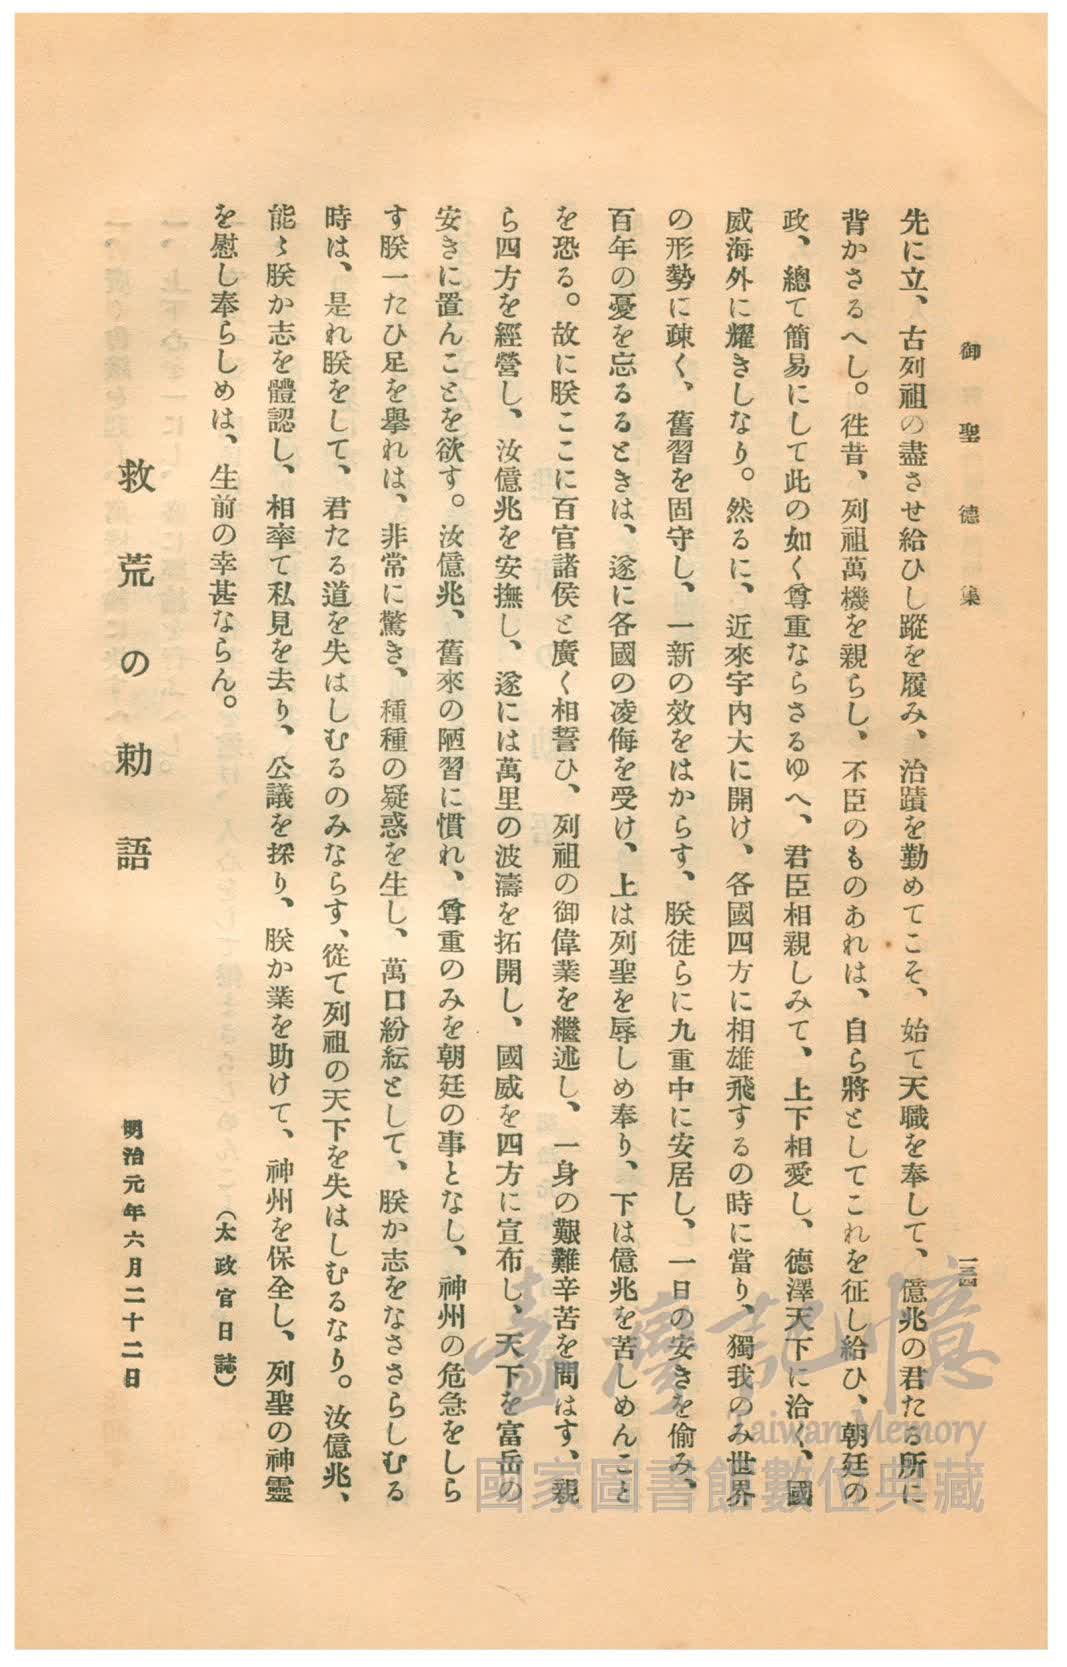 御聖德集
一三四
先に立、古列祖の盡させ給ひし蹤を履み、治蹟を勤めてこそ、始て天職を奉して、億兆の君たる所に
背かさるへし。徃昔、列祖萬機を親らし、不臣のものあれは、自ら將としてこれを征し給ひ、朝廷の
政、總て簡易にして此の如く尊重ならさるゆへ、君臣相親しみて、上下相愛し、德澤天下に洽く、國
威海外に耀きしなり。然るに、近來宇内大に開け、各國四方に相雄飛するの時に當り、獨我のみ世界
の形勢に疎く、舊習を固守し、一新の效をはからす、朕徒らに九重中に安居し、一日の安きを偷み、
百年の憂を忘るるときは、遂に各國の凌侮を受け、上は列聖を辱しめ奉り、下は億兆を苦しめんこと
を恐る。故に朕ここに百官諸侯と廣く相誓ひ、列祖の御偉業を繼述し、一身の艱難辛苦を問はす、親
ら四方を經營し、汝億兆を安撫し、遂には萬里の波濤を拓開し、國威を四方に宣布し、天下を富岳の
安きに置んことを欲す。汝億兆、舊來の陋習に慣れ、尊重のみを朝廷の事となし、神州の危急をしら
す朕一たひ足を擧れは、非常に驚き、種種の疑惑を生し、萬口紛紜として、朕か志をなささらしむる
時は、是れ朕をして、君たる道を失はしむるのみならす、從て列祖の天下を失はしむるなり。汝億兆、
能〻朕か志を體認し、相率て私見を去り、公議を採り、朕か業を助けて、神州を保全し、列聖の神靈
を慰し奉らしめは、生前の幸甚ならん。
（太政官日誌）
救荒の勅語
明治元年六月二十二日
臺灣記憶
Taiwan Memory
國家圖書館數位典藏